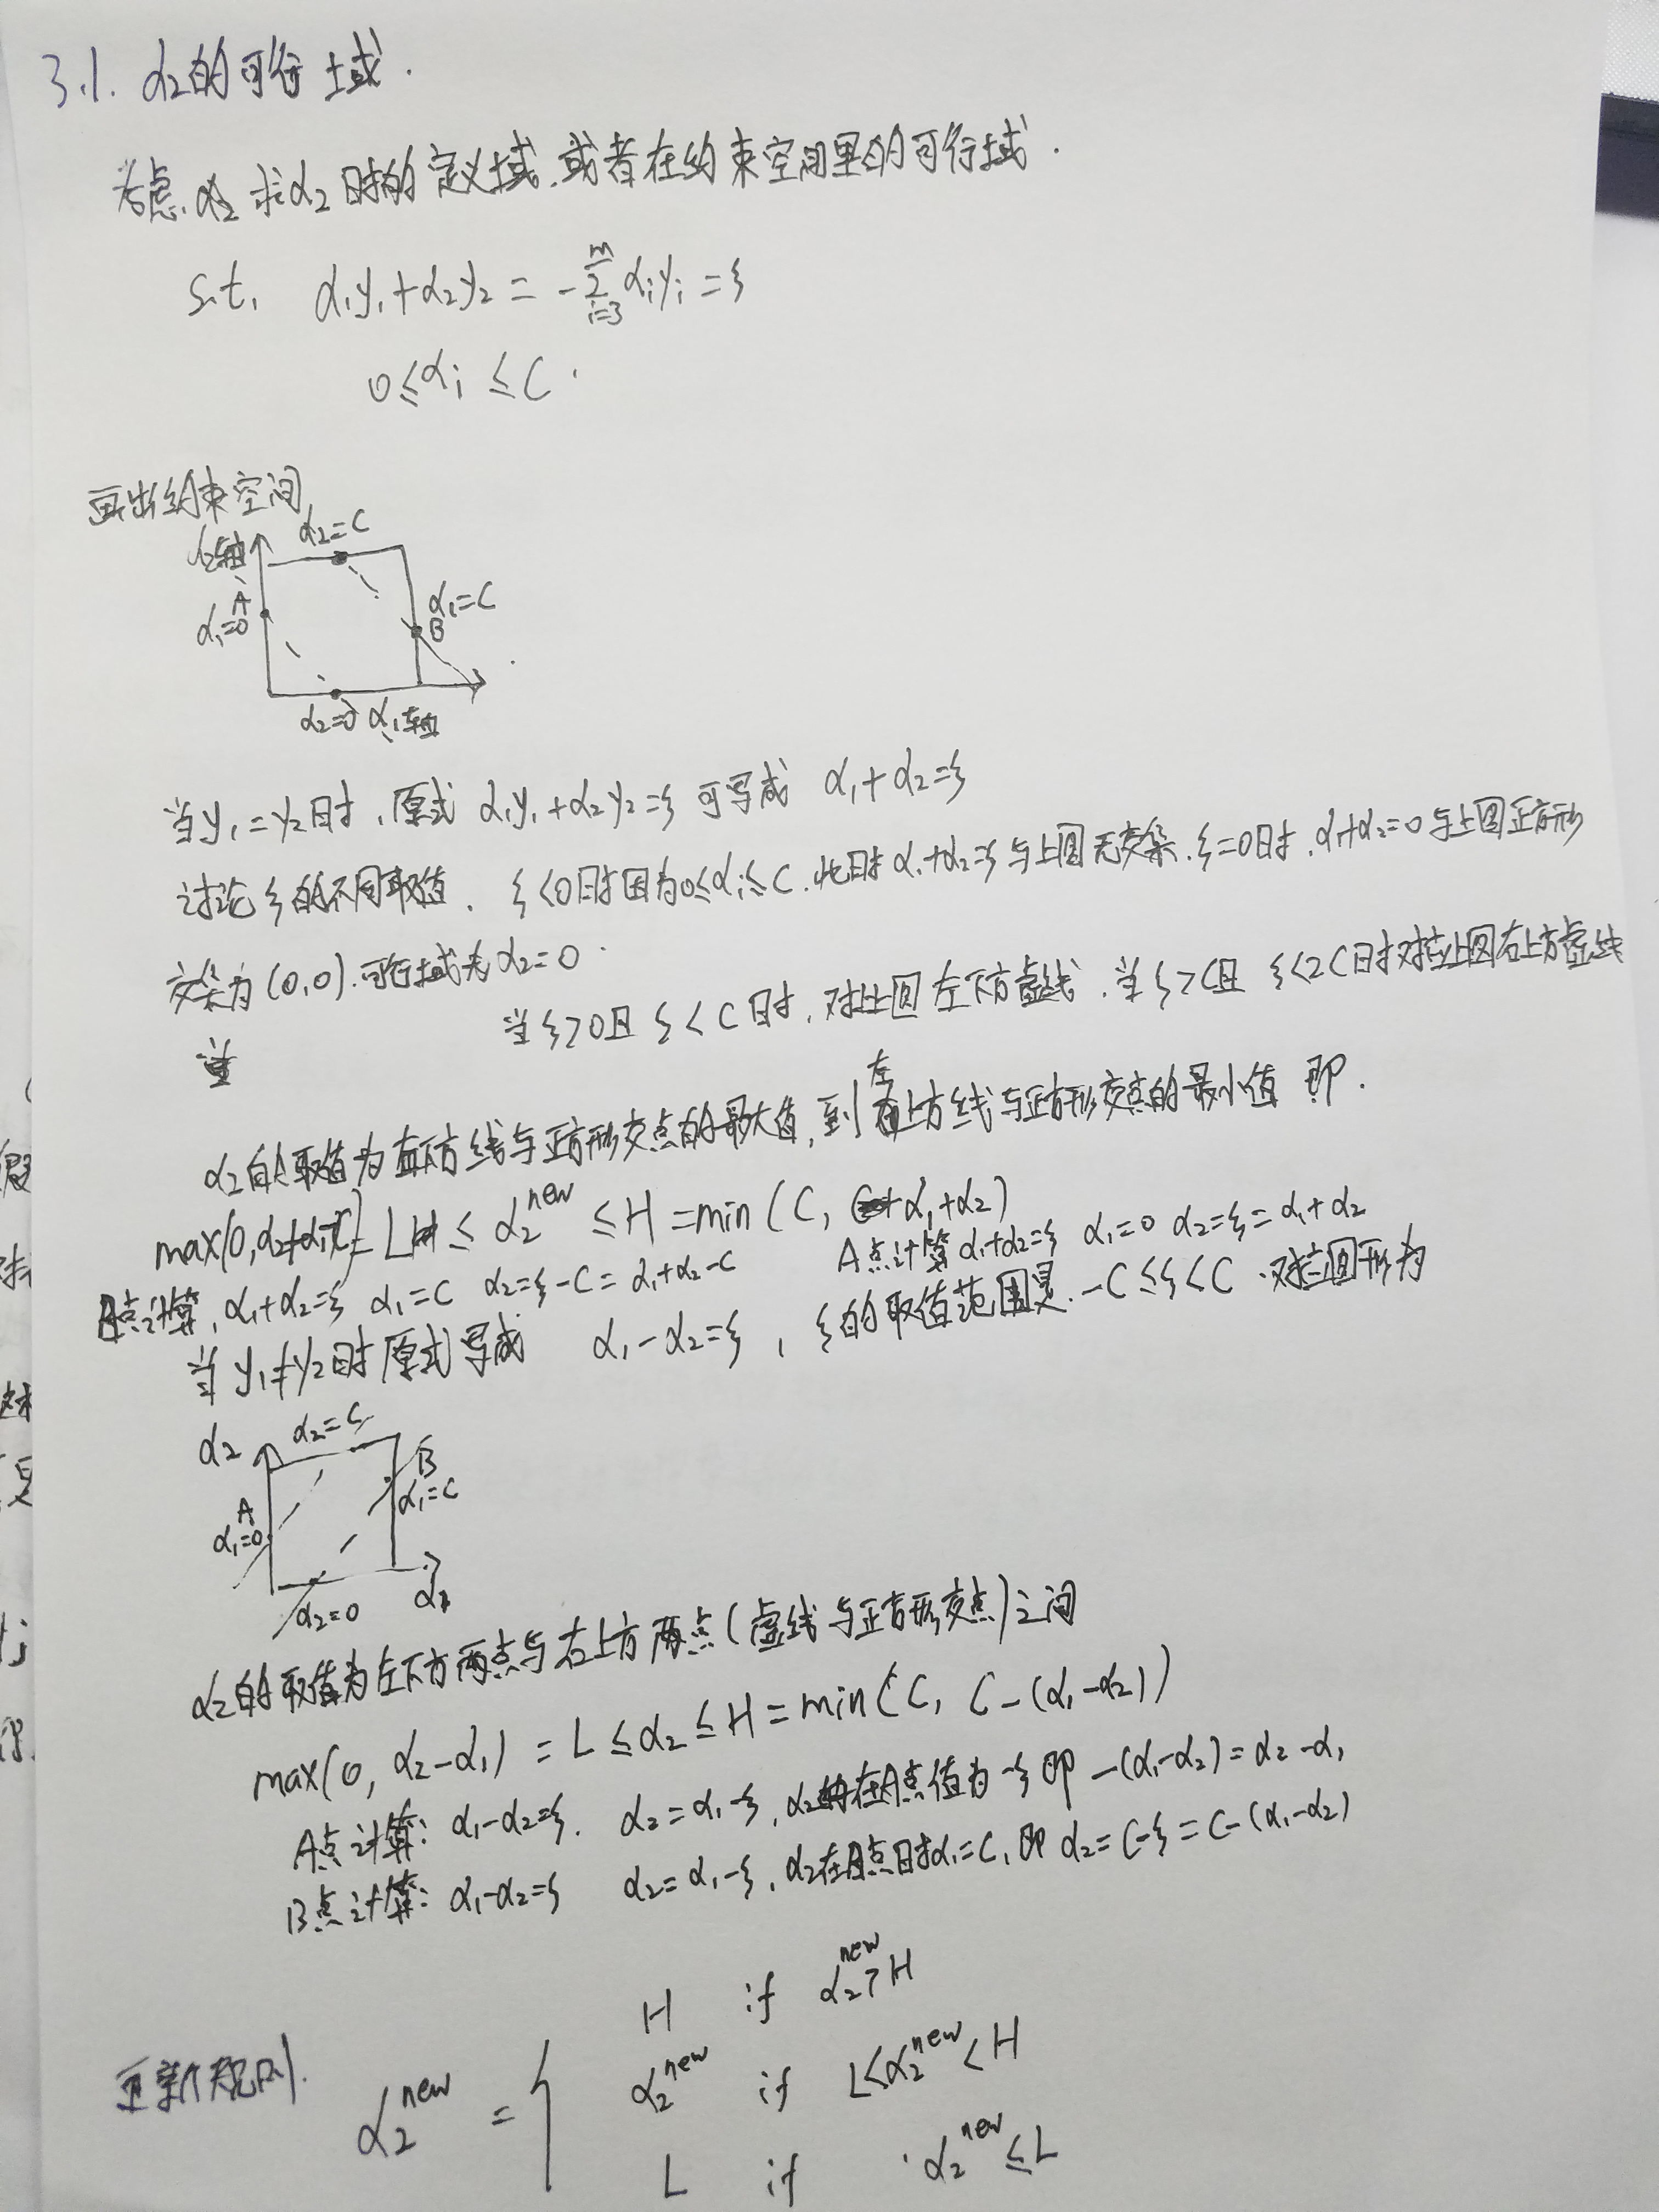 3.1. α₂的可行域.
考虑 α₂ 求α₂时的定义域.或者在约束空间里的可行域.
s.t. α₁y₁+α₂y₂ = -∑_{i=3}^{m} αᵢyᵢ = ξ
0≤αᵢ ≤C.
画出约束空间
α₂=C
α₂轴
A
α₁=0
α₁=C
B
α₂=0 α₁轴
当y₁=y₂时,原式 α₁y₁+α₂y₂=ξ 可写成 α₁+α₂=ξ
讨论ξ的不同取值. ξ<0时因为0≤αᵢ≤C.此时α₁+α₂=ξ与上图无交集.ξ=0时.α₁+α₂=0与上图正方形
交集为(0,0).可行域为α₂=0.
当ξ>0且ξ<C时,对比图左下方虚线.当ξ>C且ξ<2C时对应上图右上方虚线
α₂的取值为右下方线与正方形交点的最大值,到左上方线与正方形交点的最小值 即.
max(0,α₂+α₁-C)=L ≤ α₂^new ≤H=min(C, α₁+α₂)
A点计算α₁+α₂=ξ α₁=0 α₂=ξ=α₁+α₂
B点计算,α₁+α₂=ξ α₁=C α₂=ξ-C=α₁+α₂-C
当y₁≠y₂时原式写成 α₁-α₂=ξ, ξ的取值范围是.-C≤ξ<C.对应图形为
α₂ α₂=C
B
A
α₁=C
α₁=0
α₂=0 α₁
α₂的取值为左下方两点与右上方两点(虚线与正方形交点)之间
max(0, α₂-α₁) = L≤α₂≤H=min(C, C-(α₁-α₂))
A点计算: α₁-α₂=ξ. α₂=α₁-ξ,α₂在A点值为-ξ即-(α₁-α₂)=α₂-α₁
B点计算: α₁-α₂=ξ α₂=α₁-ξ,α₂在B点时α₁=C,即α₂=C-ξ=C-(α₁-α₂)
H if α₂^new>H
更新规则. α₂^new = { α₂^new if L<α₂^new<H
L if α₂^new≤L